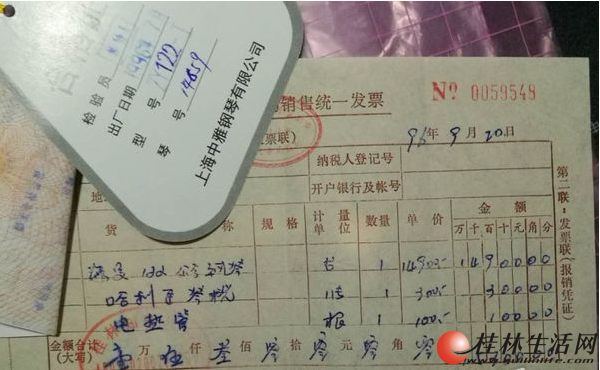 合格证
检验员
出厂日期
型号 122
琴号 14859
上海中雅钢琴有限公司
销售统一发票
(发票联)
Nº 0059549
年 9 月 20 日
纳税人登记号
开户银行及帐号
地
货 称 规格 计量单位 数量 单价 金额
万 千 百 十 元 角 分
122 台 1 14900.- 1 4 9 0 0 0 0
哈利 琴 1 300.- 3 0 0 0 0
电热管 根 1 100.- 1 0 0 0 0
金额合计(大写) 壹 万 伍 仟 叁 佰 零 拾 零 元 零 角 零
第二联:发票联(报销凭证)
桂林生活网